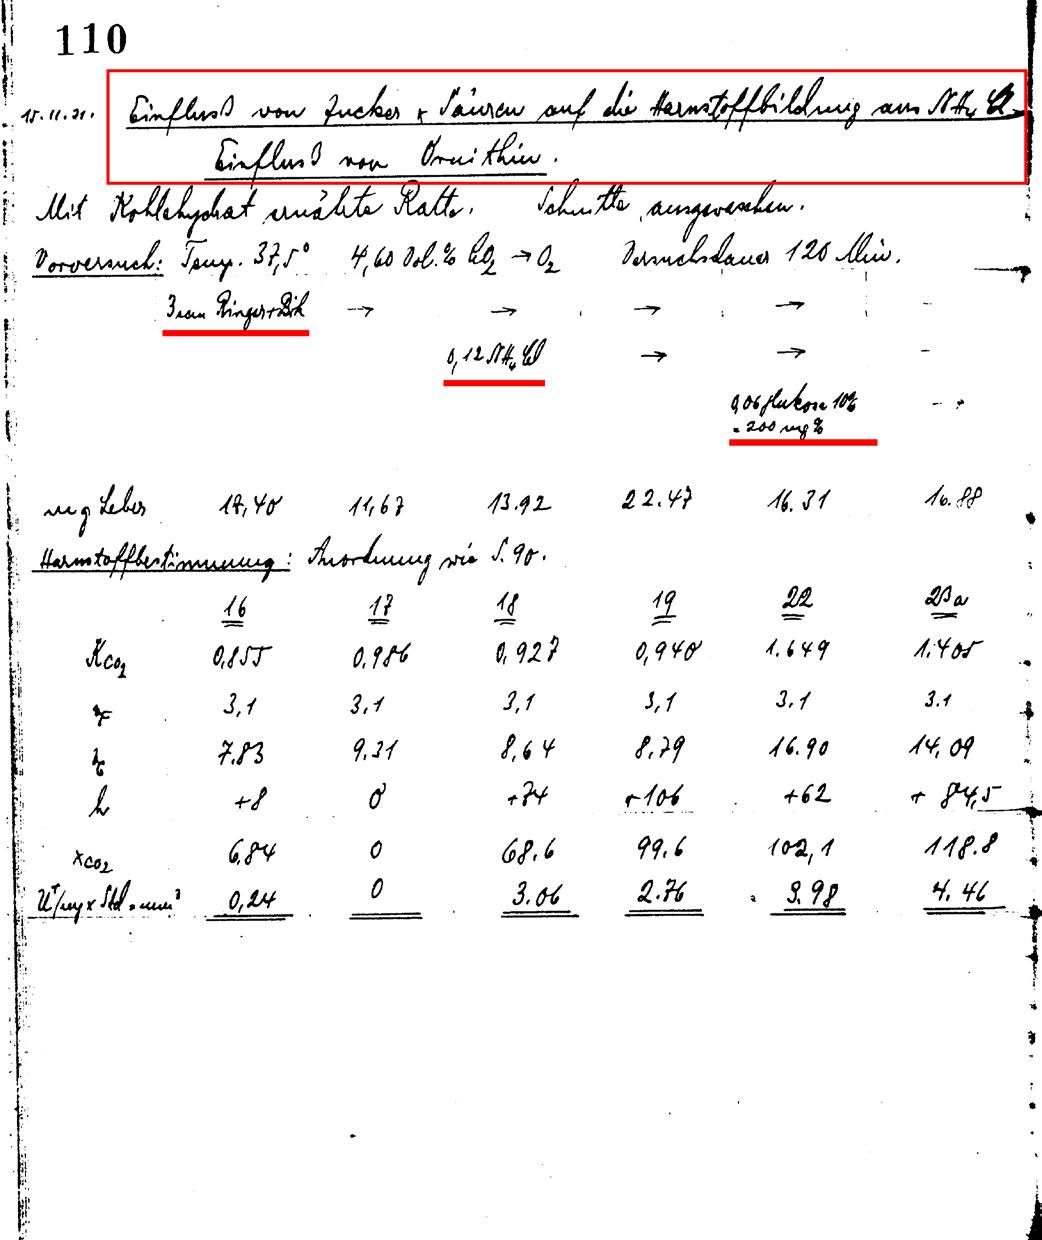 110
15.11.31. Einfluß von Zucker + Säuren auf die Harnstoffbildung aus NH₄Cl.
Einfluß von Ornithin.
Mit Kohlehydrat ernährte Ratte. Schnitte ausgewaschen.
Vorversuch: Temp. 37,5° 4,60 Vol.% CO₂ → O₂ Versuchsdauer 120 Min.
3 ccm Ringer+Bik → → → → -
0,12 NH₄Cl → → -
0,06 Glukose 10% - -
= 200 mg%
mg Leber 14,40 11,67 13.92 22.47 16.31 16.88
Harnstoffbestimmung: Anordnung wie S. 90.
16 17 18 19 22 23a
K CO₂ 0,855 0,986 0,927 0,940 1.649 1.405
v F 3,1 3,1 3,1 3,1 3.1 3.1
v G 7.83 9.31 8,64 8.79 16.90 14,09
h +8 0 +74 +106 +62 + 84,5
x CO₂ 6,84 0 68.6 99.6 102,1 118.8
U⁺/mg x Std = mm³ 0,24 0 3.06 2.76 3.98 4.46